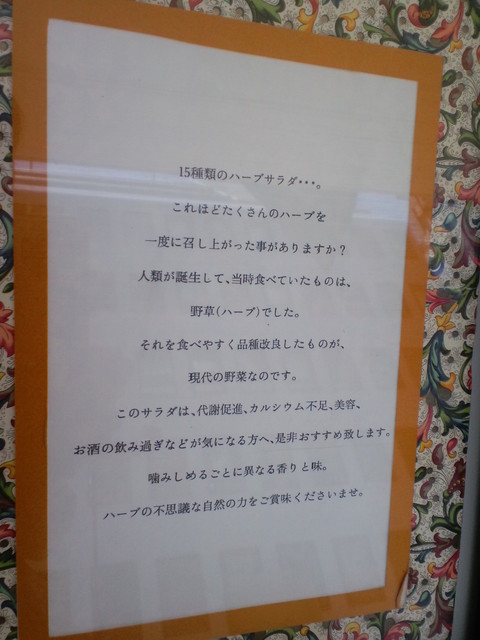 15種類のハーブサラダ・・・。
これほどたくさんのハーブを
一度に召し上がった事がありますか？
人類が誕生して、当時食べていたものは、
野草(ハーブ)でした。
それを食べやすく品種改良したものが、
現代の野菜なのです。
このサラダは、代謝促進、カルシウム不足、美容、
お酒の飲み過ぎなどが気になる方へ、是非おすすめ致します。
噛みしめるごとに異なる香りと味。
ハーブの不思議な自然の力をご賞味くださいませ。